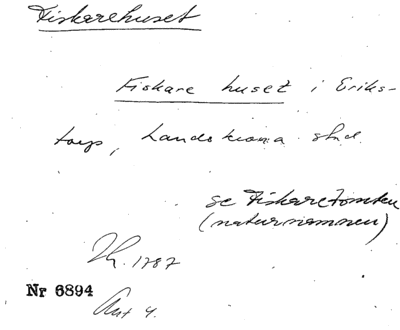 Fiskarehuset
Fiskare huset i Eriks-
torp, Landskrona std
se Fiskaretomten
(naturnamnen)
1787
Nr 6894
Ant 4.